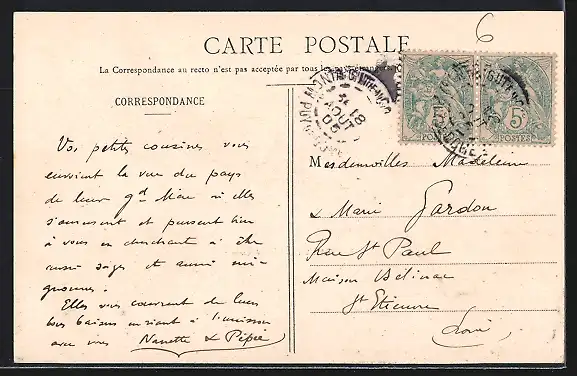 6
CARTE POSTALE
La Correspondance au recto n'est pas acceptée par tous les pays étrangers
CORRESPONDANCE
Vos petites cousines vous
envoient la vue du pays
de leur gd Mère où elles
s'amusent et pensent bien
à vous en cherchant à être
aussi sages et aussi mi-
gnonnes.
Elles vous couvrent de leurs
bons baisers en riant à l'unisson
avec vous Nanette & Pépée
18
AOUT
05
POSTES
5c
POSTES
Mesdemoiselles Madeleine
& Marie Fardon
Rue St Paul
Maison Delinac
St Etienne
Loire